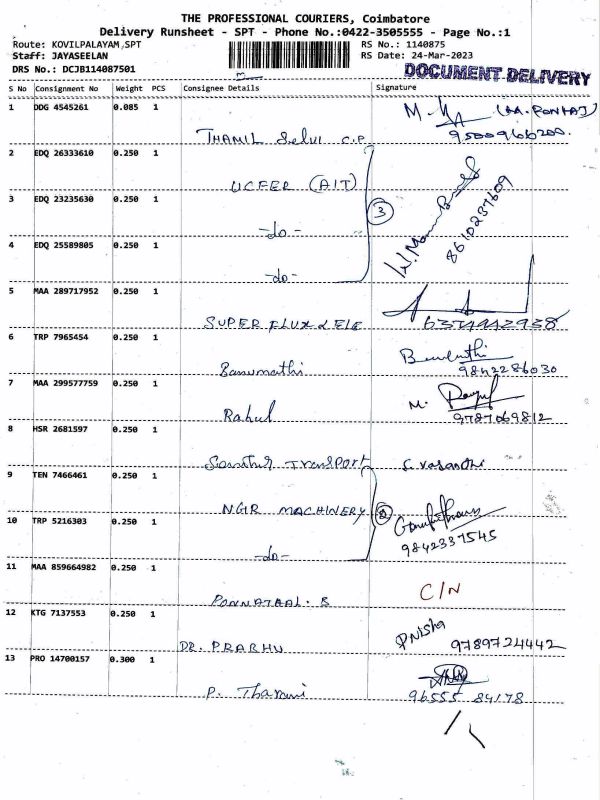 THE PROFESSIONAL COURIERS, Coimbatore
Delivery Runsheet - SPT - Phone No.:0422-3505555 - Page No.:1
Route: KOVILPALAYAM,SPT RS No.: 1140875
Staff: JAYASEELAN RS Date: 24-Mar-2023
DRS No.: DCJB114087501 DOCUMENT DELIVERY
S No Consignment No Weight PCS Consignee Details Signature
1 DDG 4545261 0.085 1
THAMIL Selvi C.P 9500966200.
2 EDQ 26333610 0.250 1
UCFER (AIT)
3 EDQ 23235630 0.250 1 3
-do- 8610237609
4 EDQ 25589805 0.250 1
-do-
5 MAA 289717952 0.250 1
SUPER FLUX & ELE 6374442938
6 TRP 7965454 0.250 1
Banumathi 9842286030
7 MAA 299577759 0.250 1
Rahul M. 9787069812
8 HSR 2681597 0.250 1
Transport S. Vasandhi
9 TEN 7466461 0.250 1
NGR MACHINERY 2
10 TRP 5216303 0.250 1
-do- 9842337545
11 MAA 859664982 0.250 1
PONNATAAL. B C/N
12 KTG 7137553 0.250 1
DR. PRABHU 9789724442
13 PRO 14700157 0.300 1
P. Tharani 96555 84178